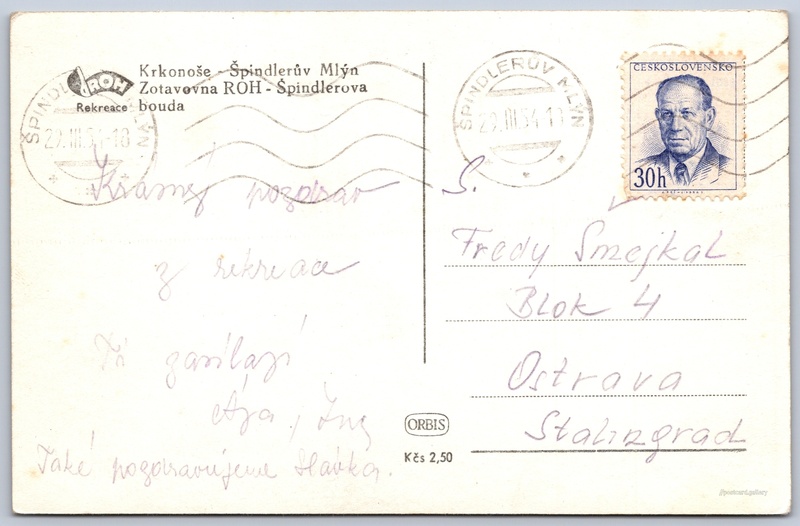 ROH
Rekreace
Krkonoše - Špindlerův Mlýn
Zotavovna ROH - Špindlerova
bouda
ŠPINDLERŮV MLÝN
29.III.54-18
ŠPINDLERŮV MLÝN
29.III.54-18
ČESKOSLOVENSKO
30h
Krásný pozdrav
z rekreace
Ti zasílají
Ája,
Také pozdravujeme Slávka.
S.
Fredy Smejkal
Blok 4
Ostrava
Stalingrad
ORBIS
Kčs 2,50